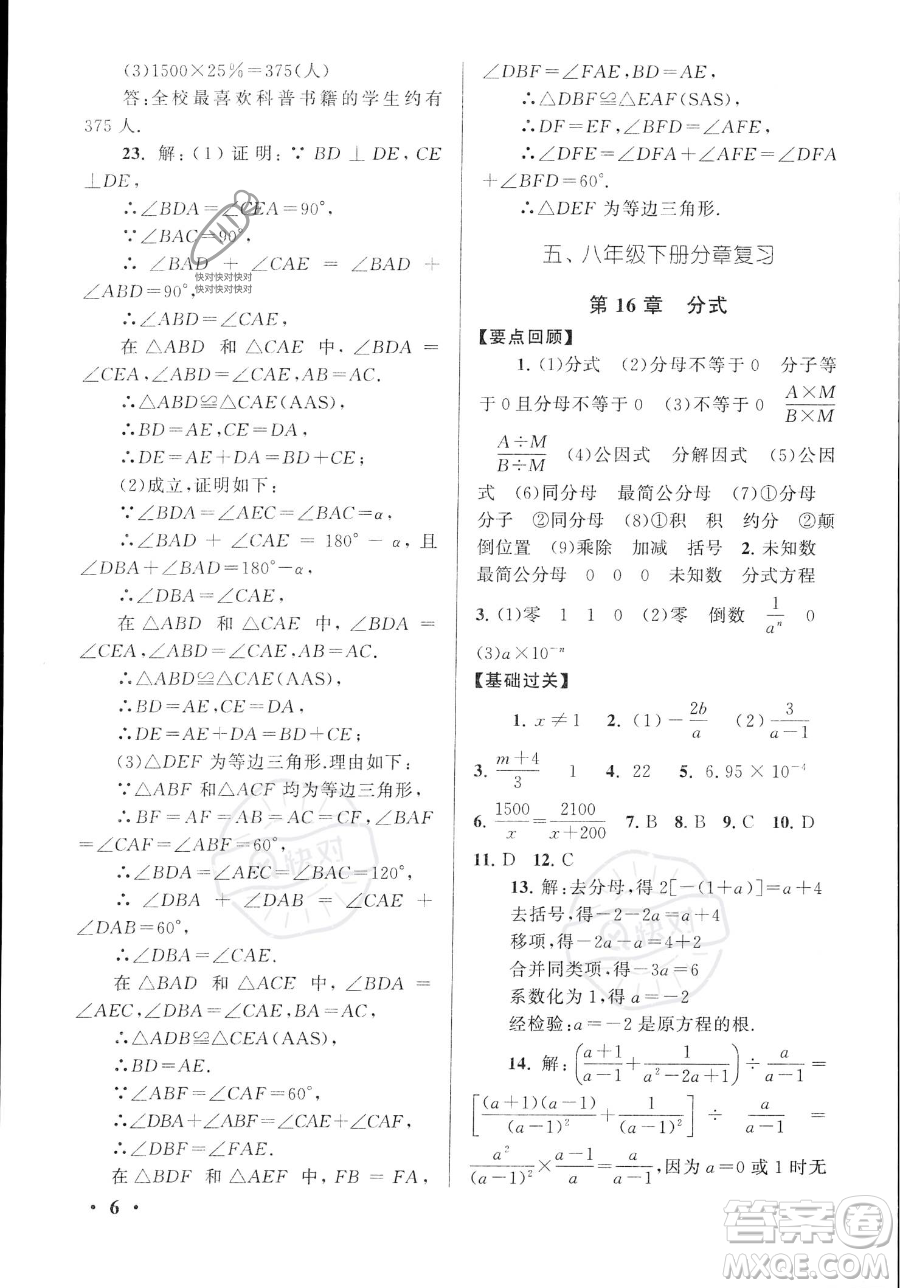 (3)1500×25%=375(人)
答:全校最喜欢科普书籍的学生约有
375人.
23. 解:(1)证明:∵BD⊥DE,CE
⊥DE,
∴∠BDA=∠CEA=90°,
∵∠BAC=90°,
∴∠BAD+∠CAE=∠BAD+
∠ABD=90°,
∴∠ABD=∠CAE,
在△ABD 和△CAE中,∠BDA=
∠CEA,∠ABD=∠CAE,AB=AC.
∴△ABD≌△CAE(AAS),
∴BD=AE,CE=DA,
∴DE=AE+DA=BD+CE;
(2)成立,证明如下:
∵∠BDA=∠AEC=∠BAC=α,
∴∠BAD+∠CAE=180°-α,且
∠DBA+∠BAD=180°-α,
∴∠DBA=∠CAE,
在△ABD 和△CAE中,∠BDA=
∠CEA,∠ABD=∠CAE,AB=AC.
∴△ABD≌△CAE(AAS),
∴BD=AE,CE=DA,
∴DE=AE+DA=BD+CE;
(3)△DEF为等边三角形.理由如下:
∵△ABF和△ACF均为等边三角形,
∴BF=AF=AB=AC,∠ABF=
∠CAF=∠BAF=60°,
∴∠BDA=∠AEC=∠BAC=120°,
∴∠DBA+∠DAB=∠CAE+
∠DAB=60°,
∴∠DBA=∠CAE.
在△BAD 和△ACE中,∠BDA=
∠AEC,∠DBA=∠CAE,BA=AC,
∴△ADB≌△CEA(AAS),
∴BD=AE.
∵∠ABF=∠CAF=60°,
∴∠DBA+∠ABF=∠CAE+∠CAF,
∴∠DBF=∠FAE.
在△BDF和△AEF中,FB=FA,
• 6 •
∠DBF=∠FAE,BD=AE,
∴△DBF≌△EAF(SAS),
∴DF=EF,∠BFD=∠AFE,
∴∠DFE=∠DFA+∠AFE=∠DFA
+∠BFD=60°.
∴△DEF为等边三角形.
五、八年级下册分章复习
第16章 分式
【要点回顾】
1. (1)分式 (2)分母不等于0 分子等
于0且分母不等于0 (3)不等于0 \frac{A×M}{B×M}
\frac{A÷M}{B÷M} (4)公因式 分解因式 (5)公因
式 (6)同分母 最简公分母 (7)①分母
分子 ②同分母 (8)①积 积 约分 ②颠
倒位置 (9)乘除 加减 括号 2. 未知数
最简公分母 0 0 0 未知数 分式方程
3. (1)零 1 1 0 (2)零 倒数 \frac{1}{a^n} 0
(3)a×10^{-n}
【基础过关】
1. x≠1 2. (1)-\frac{2b}{a} (2)\frac{3}{a-1}
3. \frac{m+4}{3} 1 4. 22 5. 6.95×10^{-4}
6. \frac{1500}{x}=\frac{2100}{x+200} 7. B 8. B 9. C 10. D
11. D 12. C
13. 解:去分母,得2[-(1+a)]=a+4
去括号,得-2-2a=a+4
移项,得-2a-a=4+2
合并同类项,得-3a=6
系数化为1,得a=-2
经检验:a=-2是原方程的根.
14. 解:(\frac{a+1}{a-1}+\frac{1}{a^2-2a+1})÷\frac{a}{a-1}=
[\frac{(a+1)(a-1)}{(a-1)^2}+\frac{1}{(a-1)^2}]÷\frac{a}{a-1}=
\frac{a^2}{(a-1)^2}×\frac{a-1}{a}=\frac{a}{a-1},因为a=0或1时无
快对快对快对
快对快对快对
快对
快对
答案卷
MXQE.COM